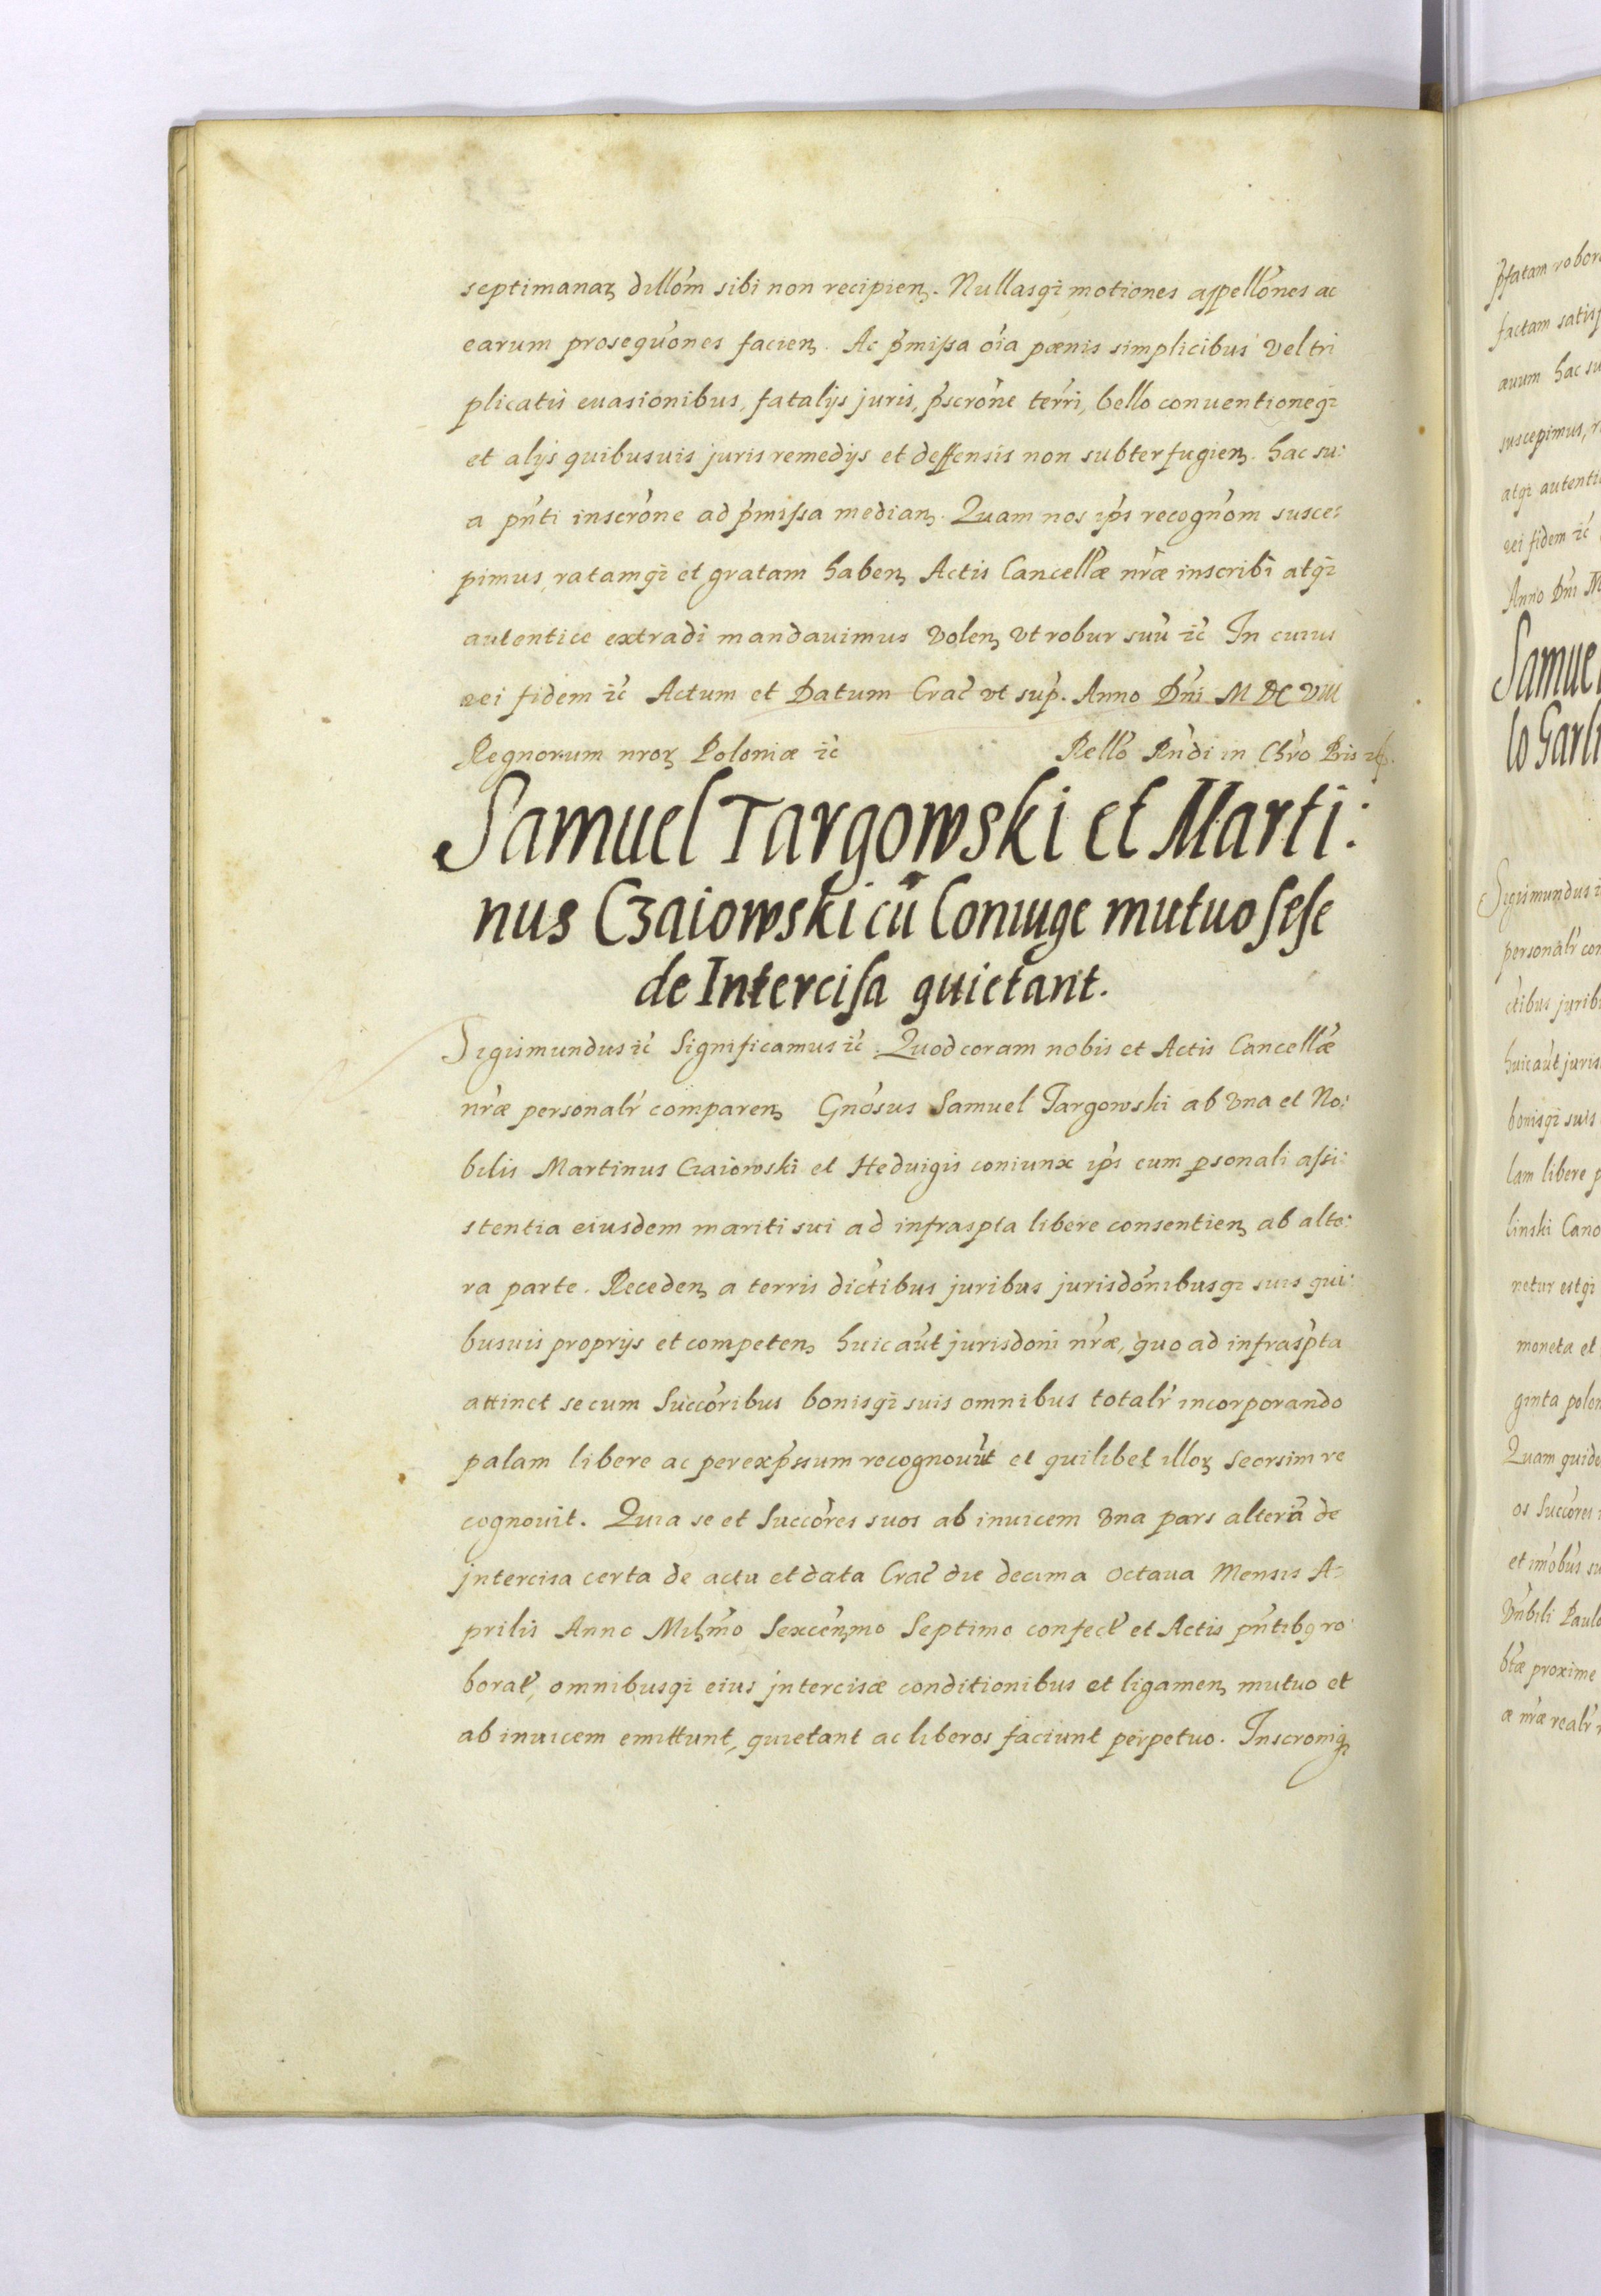 septimanaꝝ dillõm sibi non recipienꝫ. Nullasqꝫ motiones appellõnes ac
earum prosequõnes facienꝫ. Ac p̃missa oĩa pœnis simplicibus vel tri
plicatis euasionibus, fatalijs juris, p̃scrõne terrĩ, bello conuentioneqꝫ
et alijs quibusuis juris remedijs et deffensis non subterfugienꝫ. hac su:
a pñti inscrõne ad p̃missa medianꝫ. Quam nos ip̃s recognõm susce:
pimus, ratamqꝫ et gratam habenꝫ Actis Cancellæ̃ nr̃æ inscribi atqꝫ
autentice extradi mandauimus volenꝫ vt robur suũ ꝛc̃ In cuius
rei fidem ꝛc̃ Actum et Datum Crac̃ vt sup̃. Anno Dñi M DC VIII
Regnorum nroꝝ Poloniæ ꝛc̃ Rello Rñdi in Chr̃o Pris
Samuel Targowski et Marti:
nus Czaiowski cũ Coniuge mutuo sese
de Intercisa quietant.
Sigismundus ꝛc̃ Significamus ꝛc̃. Quod coram nobis et Actis Cancellæ̃
nr̃æ personalr̃ comparenꝫ Gnõsus Samuel Targowski ab vna et No:
bilis Martinus Czaiowski et Heduigis coniunx ip̃s cum ꝑsonali assi:
stentia eiusdem mariti sui ad infraspta libere consentienꝫ ab alte:
ra parte. Recedenꝫ a terris dictibus juribus jurisdõnibusqꝫ suis qui:
busuis proprijs et competenꝫ huic aũt jurisdoni nr̃æ, quo ad infrasp̃ta
attinet se cum Succõribus bonisqꝫ suis omnibus totalr̃ incorporando
palam libere ac per exp̃ssum recognouũt et quilibet illoꝝ seorsim re
cognouit. Quia se et Succõres suos ab inuicem vna pars alterã de
jntercisa certa de actu et data Crac̃ die decima octaua Mensis A:
prilis Anno Milꝫmo Sexcenꝫmo Septimo confect̃ et Actis pñtibꝰ ro:
borat̃, omnibusqꝫ eius jntercisæ conditionibus et ligamenꝫ mutuo et
ab inuicem emittunt, quietant ac liberos faciunt perpetuo. Inscroniqꝫ
p̃fatam
factam
auum hac su
suscepimus,
atqꝫ
rei fidem ꝛc̃
Anno Dñi M
Samuel
lo Garli
Sigismundus
personalr̃ con
ctibus
huic aũt juris
bonisqꝫ suis
lam libere p
linski Cano
netur estqꝫ
moneta et
ginta polon
Quam quide
os Succõres
et im̃obus su
Vñbili Paulo
btæ proxime
æ nr̃æ realr̃